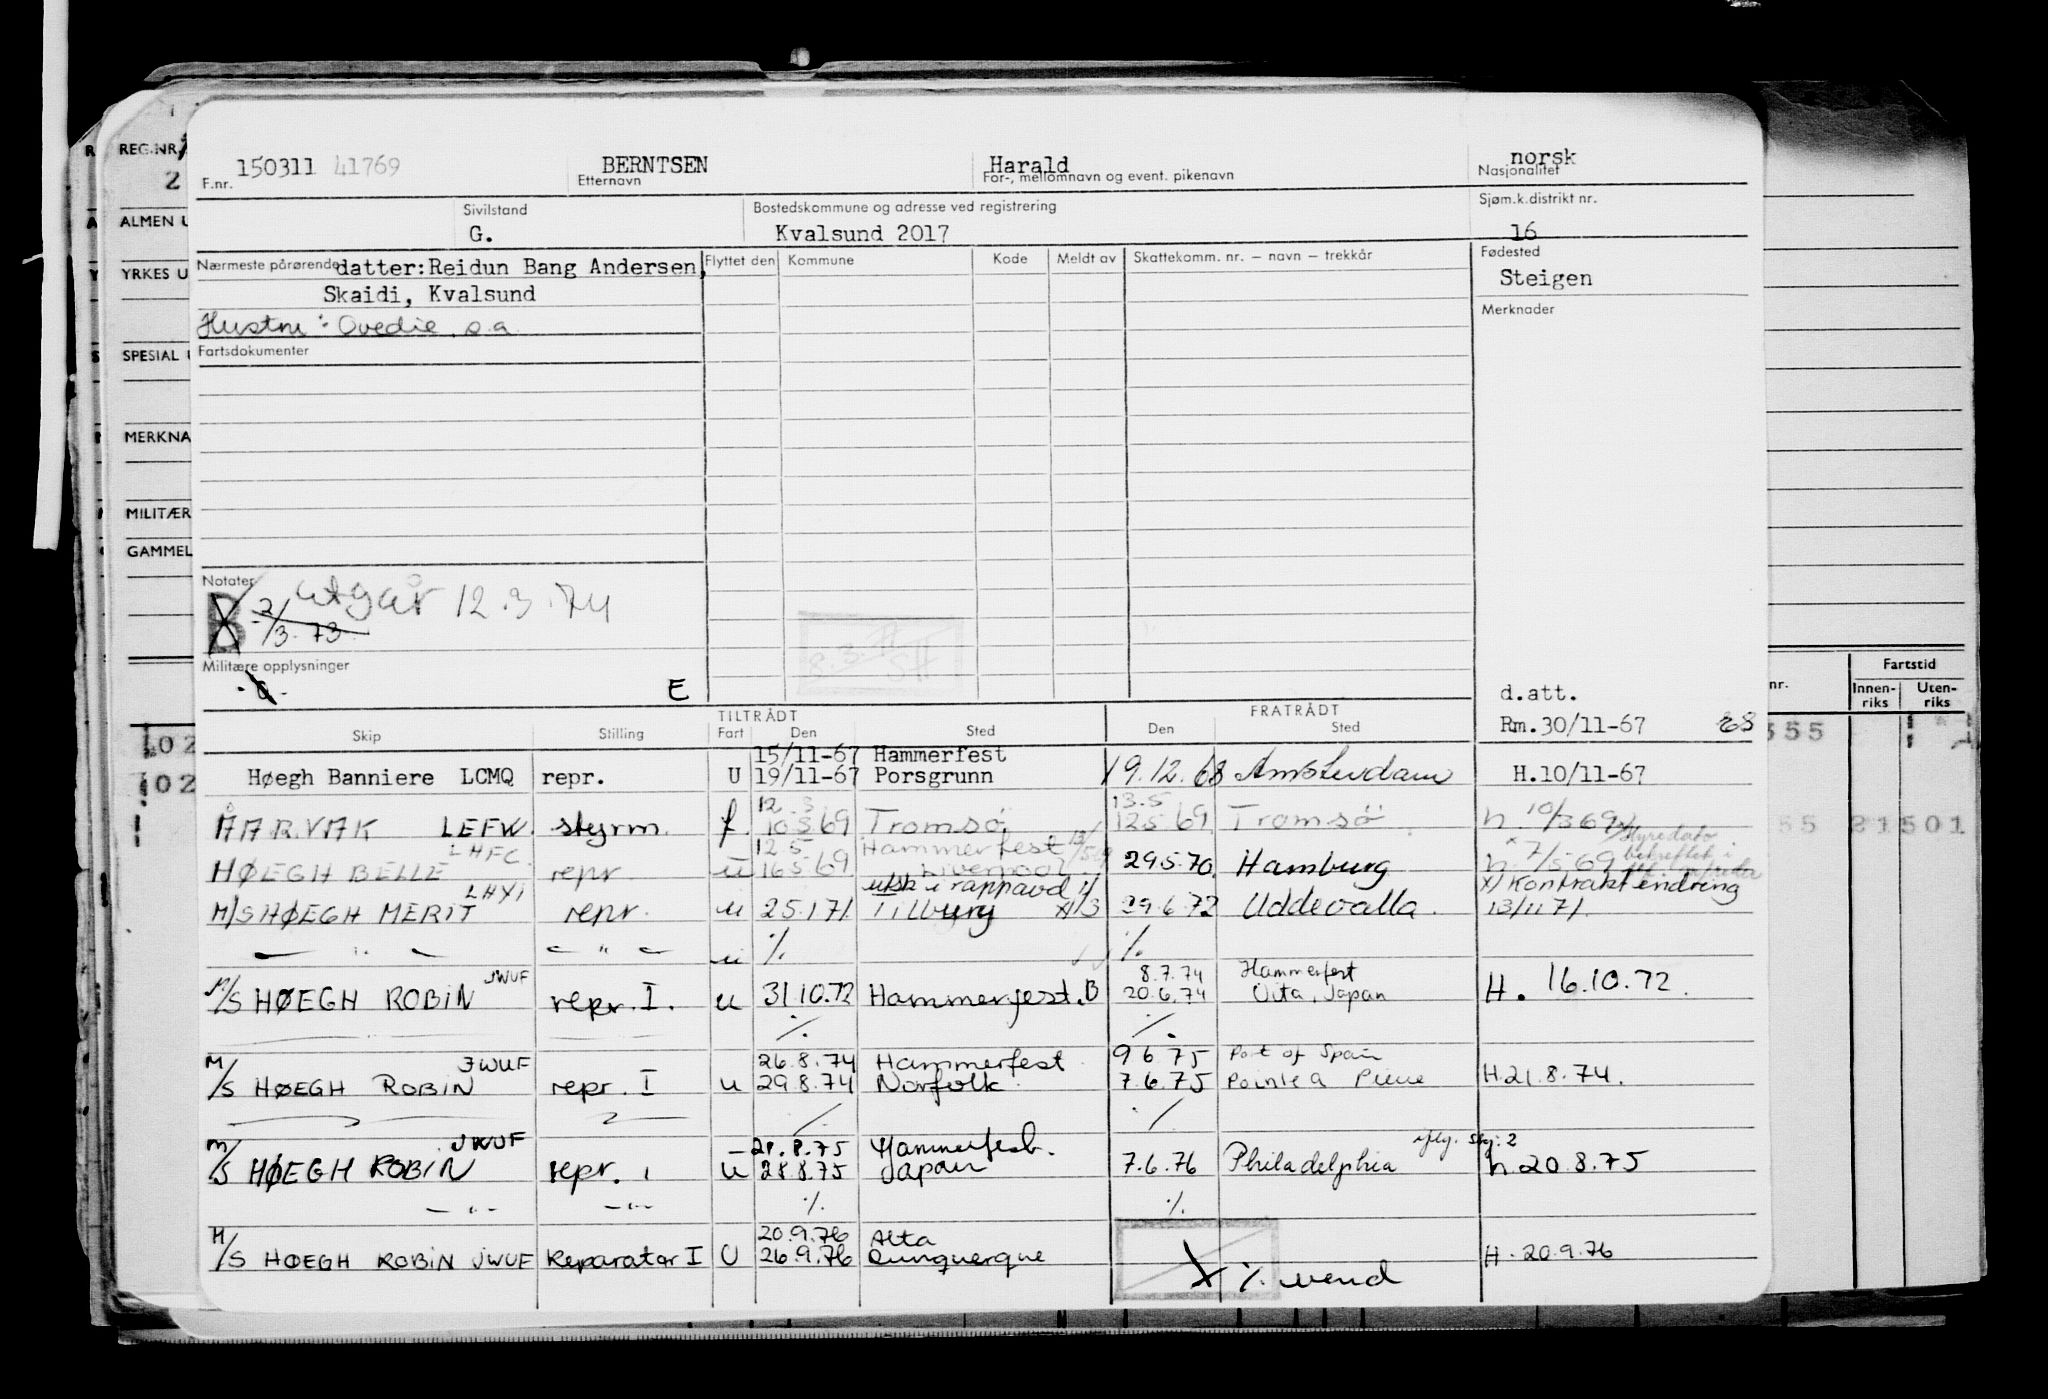 REG.NR.
2
ALMEN U
YRKES U
SPECIAL U
MERKNA
MILITÆR
GAMMEL
150311 41769 BERNTSEN Harald norsk
F.nr. Etternavn For-, mellomnavn og event. pikenavn Nasjonalitet
Sivilstand Bostedskommune og adresse ved registrering Sjøm.k.distrikt nr.
G. Kvalsund 2017 16
Nærmeste pårørende datter:Reidun Bang Andersen, Flyttet den Kommune Kode Meldt av Skattekomm. nr. – navn – trekkår Fødested
Skaidi, Kvalsund Steigen
Hustru: Ovedie s.a. Merknader
Fartsdokumenter
Notater
utgår 12.3.74
B 2/3-73
8.3.
Militære opplysninger
E
d.att.
TILTRÅDT FRATRÅDT
Rm.30/11-67 68
Skip Stilling Fart Den Sted Den Sted
15/11-67 Hammerfest
Høegh Banniere LCMQ repr. U 19/11-67 Porsgrunn 19.12.68 Amsterdam H.10/11-67
12 3 13.5
ÅARVAK LEFW. styrm. f 10 3 69 Tromsø 12 5 69 Tromsø h 10/3 69
LHFC 12 5 Hammerfest
HØEGH BELLE repr u 16 5 69 Liverpool 29.5.70 Hamburg h 7/5 69
LHXI utsk i rapp avd x) Kontrakt endring
M/S HØEGH MERIT repr. u 25.1 71 Tilburg 29.6.72 Uddevalla. 13/11 71.
— " — — " — u ./. ./.
JWUF 8.7.74 Hammerfest
M/S HØEGH ROBIN repr. I. u 31.10.72 Hammerfest. B 20.6.74 Oita, Japan H. 16.10.72.
./. ./.
JWUF 26.8.74 Hammerfest 9 6 75 Port of Spain
M/S HØEGH ROBIN repr. I u 29.8.74 Norfolk 7.6.75 Pointe a Pierre H.21.8.74.
./. ./.
JWUF 21.8.75 Hammerfest. iflg. skj. 2
M/S HØEGH ROBIN repr. I u 28 8.75 Japan 7.6.76 Philadelphia h.20.8.75
— " — — " — ./. ./.
20.9.76 Alta
M/S HØEGH ROBIN JWUF Reparatør I U 26.9.76 Dunquerque H.20.9.76
./. vend
nr. Fartstid
Innen-riks Uten-riks
02
555
02
55 21501